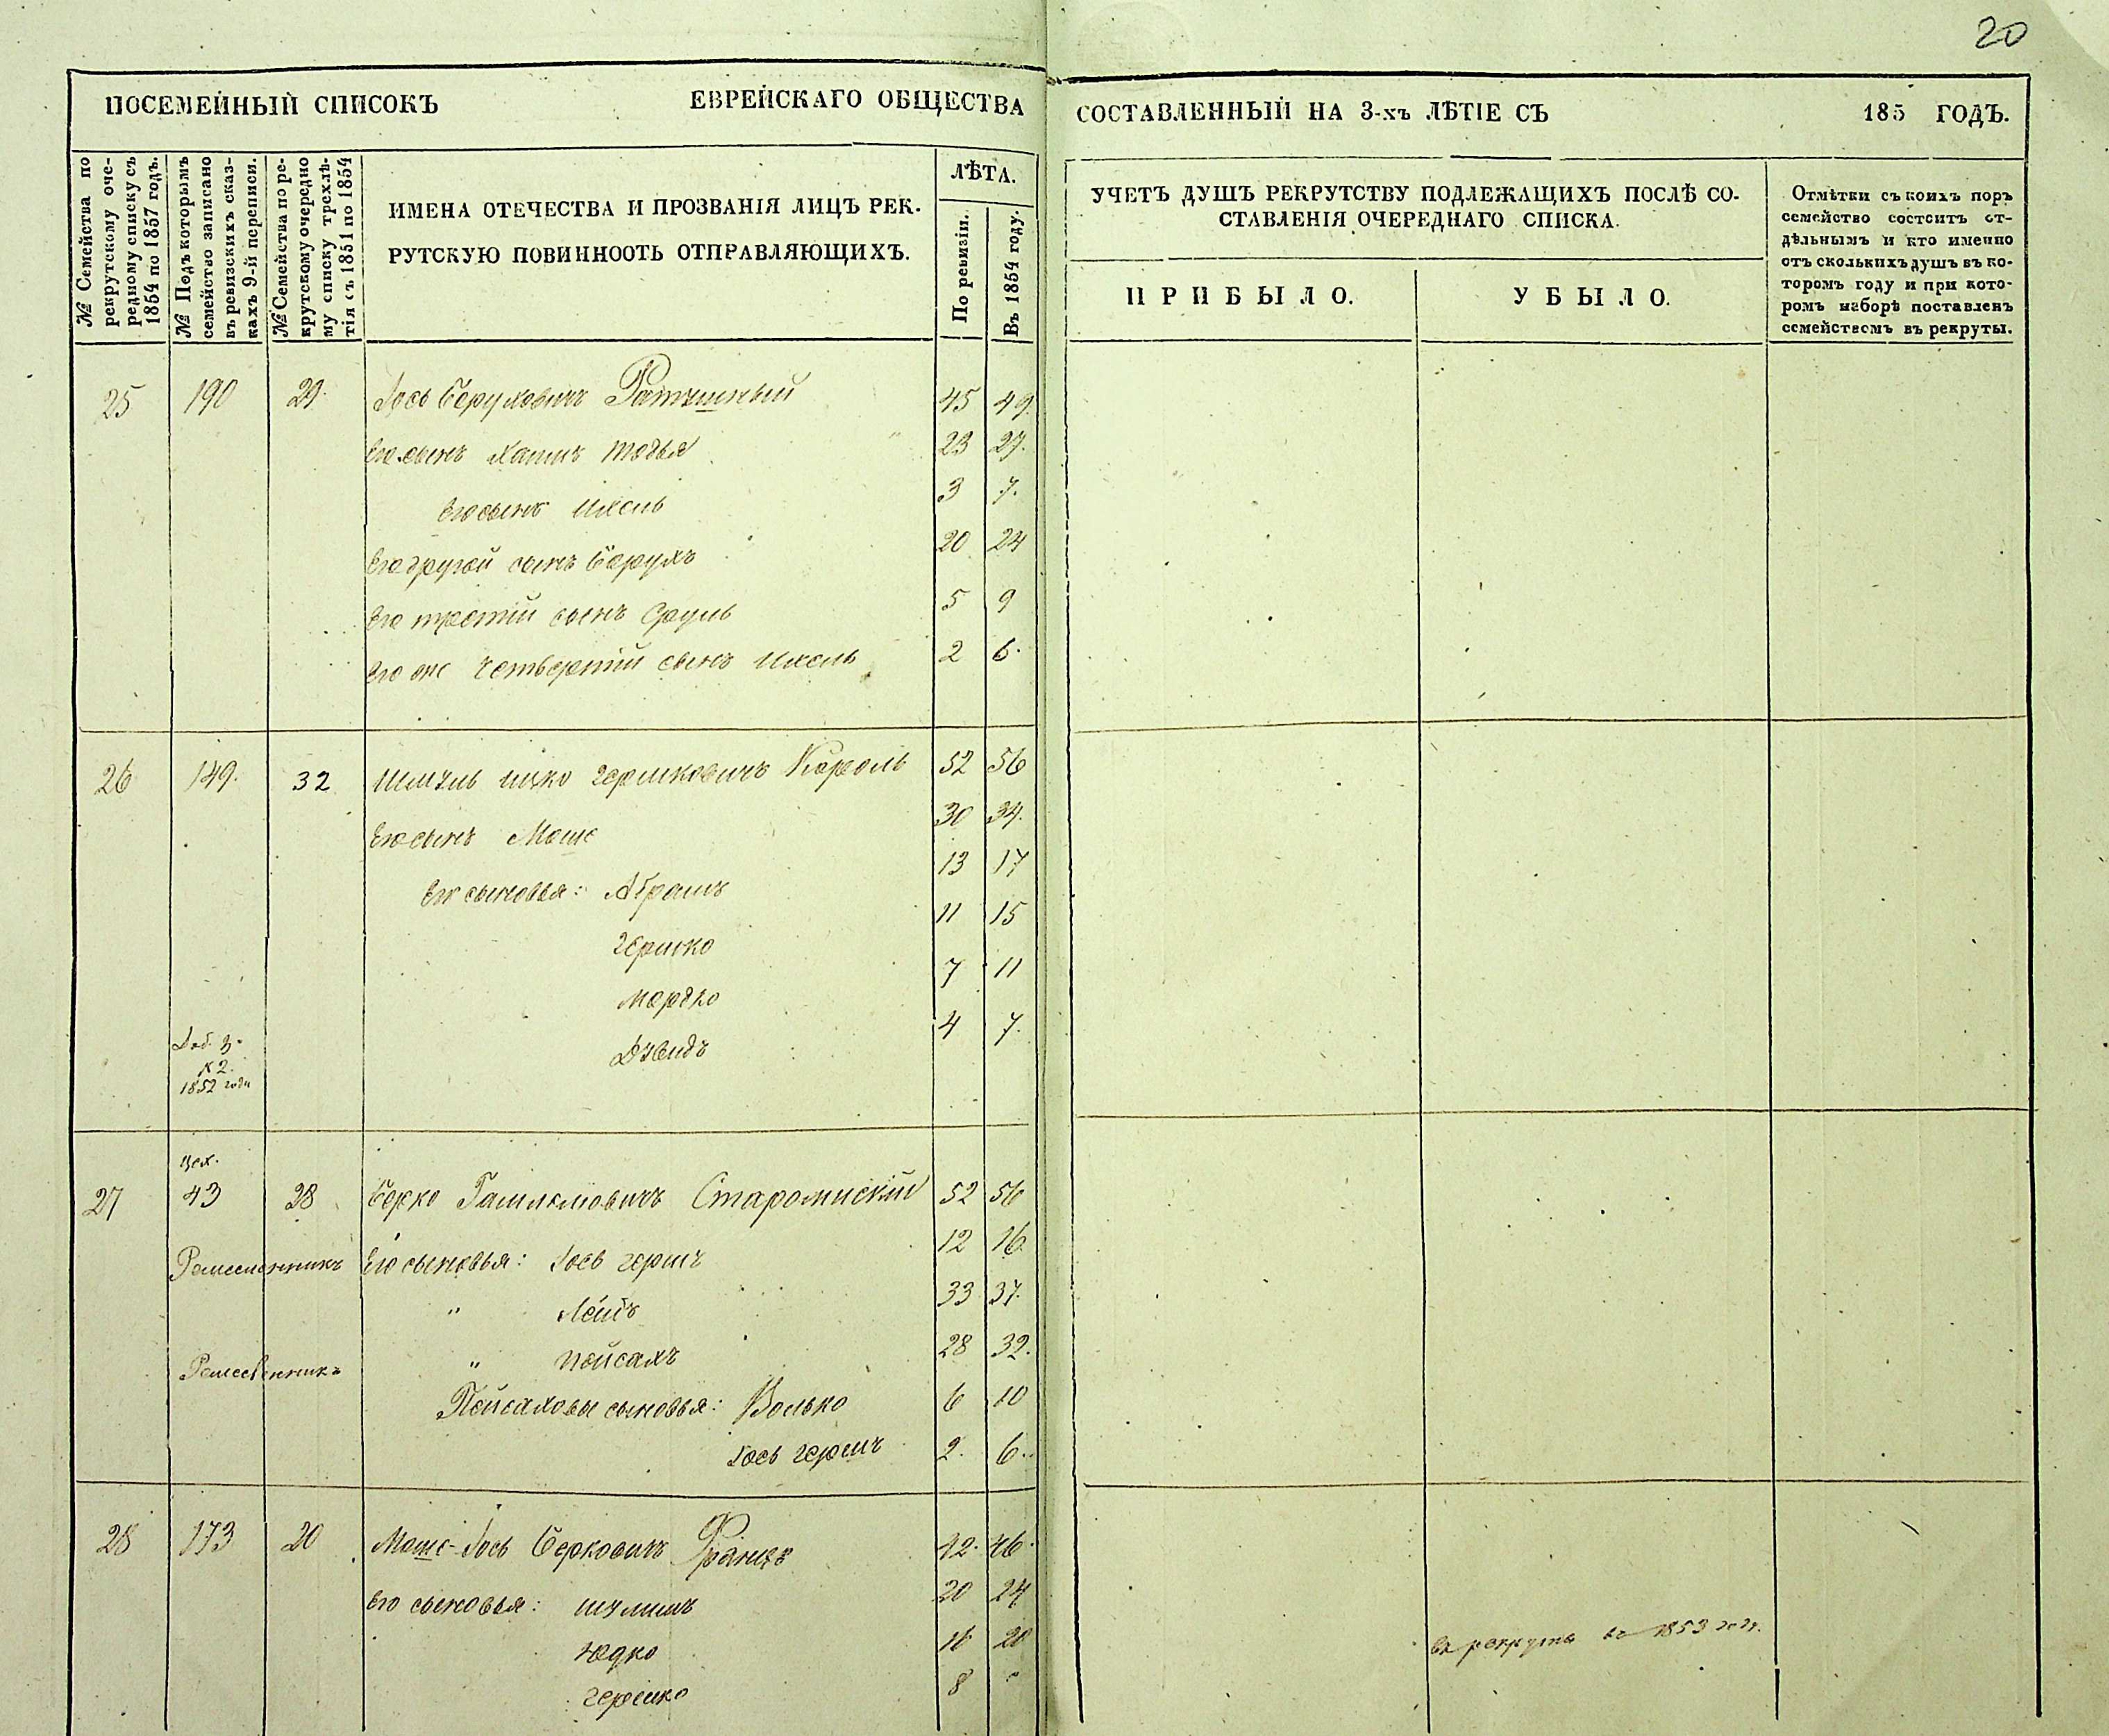 20
ПОСЕМЕЙНЫЙ СПИСОКЪ ЕВРЕЙСКАГО ОБЩЕСТВА СОСТАВЛЕННЫЙ НА 3-хъ ЛѢТІЕ СЪ 185 ГОДЪ.
№ Семейства по
рекрутскому оче-
редному списку съ
1854 по 1857 годъ.
№ Подъ которымъ
семейство записано
въ ревизскихъ сказ-
кахъ 9-й переписи.
№ Семейства по ре-
крутскому очередно
му списку трехлѣ-
тія съ 1851 по 1854
ИМЕНА ОТЕЧЕСТВА И ПРОЗВАНІЯ ЛИЦЪ РЕК-
РУТСКУЮ ПОВИННООТЬ ОТПРАВЛЯЮЩИХЪ.
ЛѢТА.
По ревизіи.
Въ 1854 году.
УЧЕТЪ ДУШЪ РЕКРУТСТВУ ПОДЛЕЖАЩИХЪ ПОСЛѢ СО-
СТАВЛЕНІЯ ОЧЕРЕДНАГО СПИСКА.
ПРИБЫЛО.
УБЫЛО.
Отмѣтки съ коихъ поръ
семейство состоитъ от-
дѣльнымъ и кто именно
отъ сколькихъ душъ въ ко-
торомъ году и при кото-
ромъ наборѣ поставленъ
семействомъ въ рекруты.
25 190 29. Іось Беруховичъ 45 49.
Его сынъ Хаимъ Тодья 23 27.
Его сынъ Ихель 3 7.
Его другой сынъ Берухъ 20 24
Его третій сынъ Сруль 5 9
Его же четвертій сынъ Ихель 2 6.
26 149. 32 Шмуль Ицко Гершковичъ Король 52 56
Его сынъ Моше 30 34.
Его сыновья: Абрамъ 13 17
Гершко 11 15
Мордко 7 11
Давидъ 4 7.
1852 года
27 43 28 Берко Старомнскій 52 56
Ремесленникъ Его сыновья: Іось Гершъ 12 16
" Лейбъ 33 37.
Ремесленникъ " Пейсахъ 28 32.
Пейсаховы сыновья: Волько 6 10
Іось Гершъ 2. 6.
28 173 20 Моше-Іось Берковичъ Францъ 42. 46.
Его сыновья: Шулимъ 20 24
Юдко 16 20 въ рекруты въ 1853 году.
Гершко 8